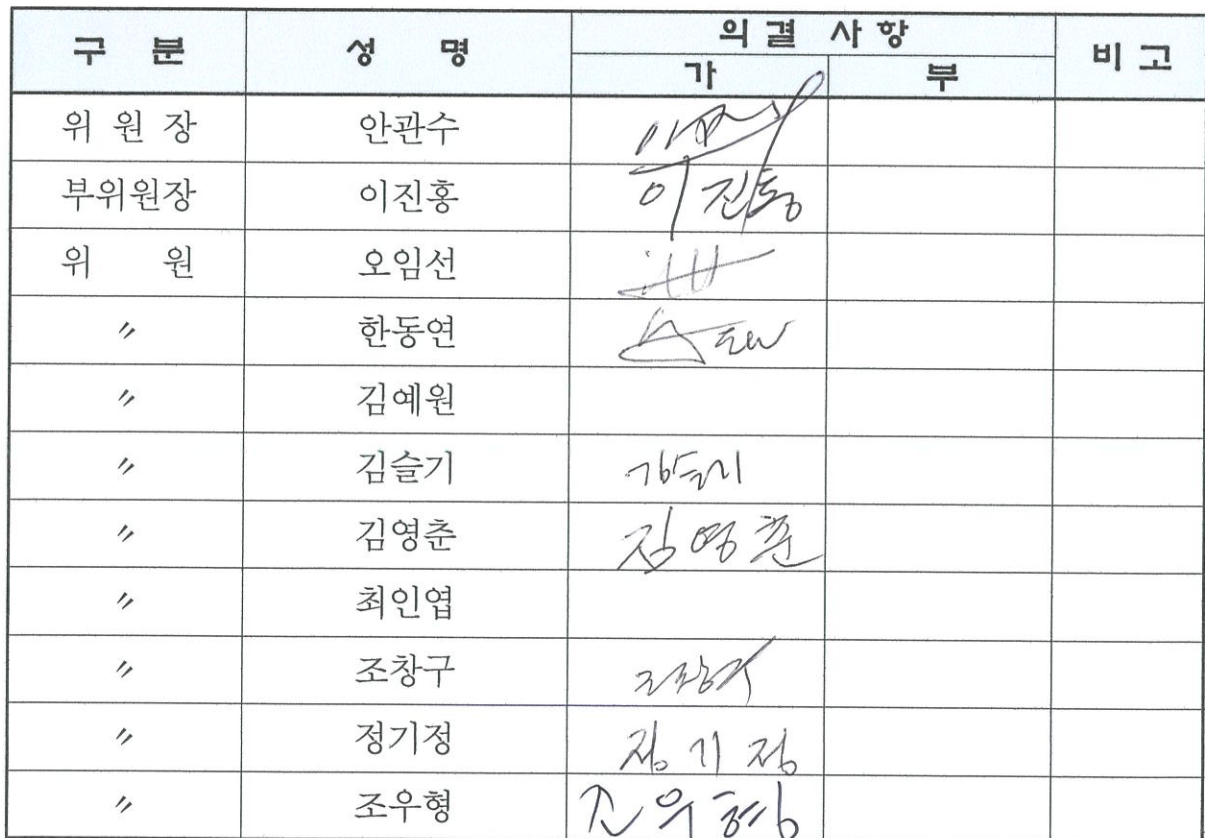 구 분 성 명 의결 사항 비고
가 부
위 원 장 안관수
부위원장 이진홍 이진홍
위 원 오임선
〃 한동연
〃 김예원
〃 김슬기 김슬기
〃 김영춘 김영춘
〃 최인엽
〃 조창구 조창구
〃 정기정 정기정
〃 조우형 조우형